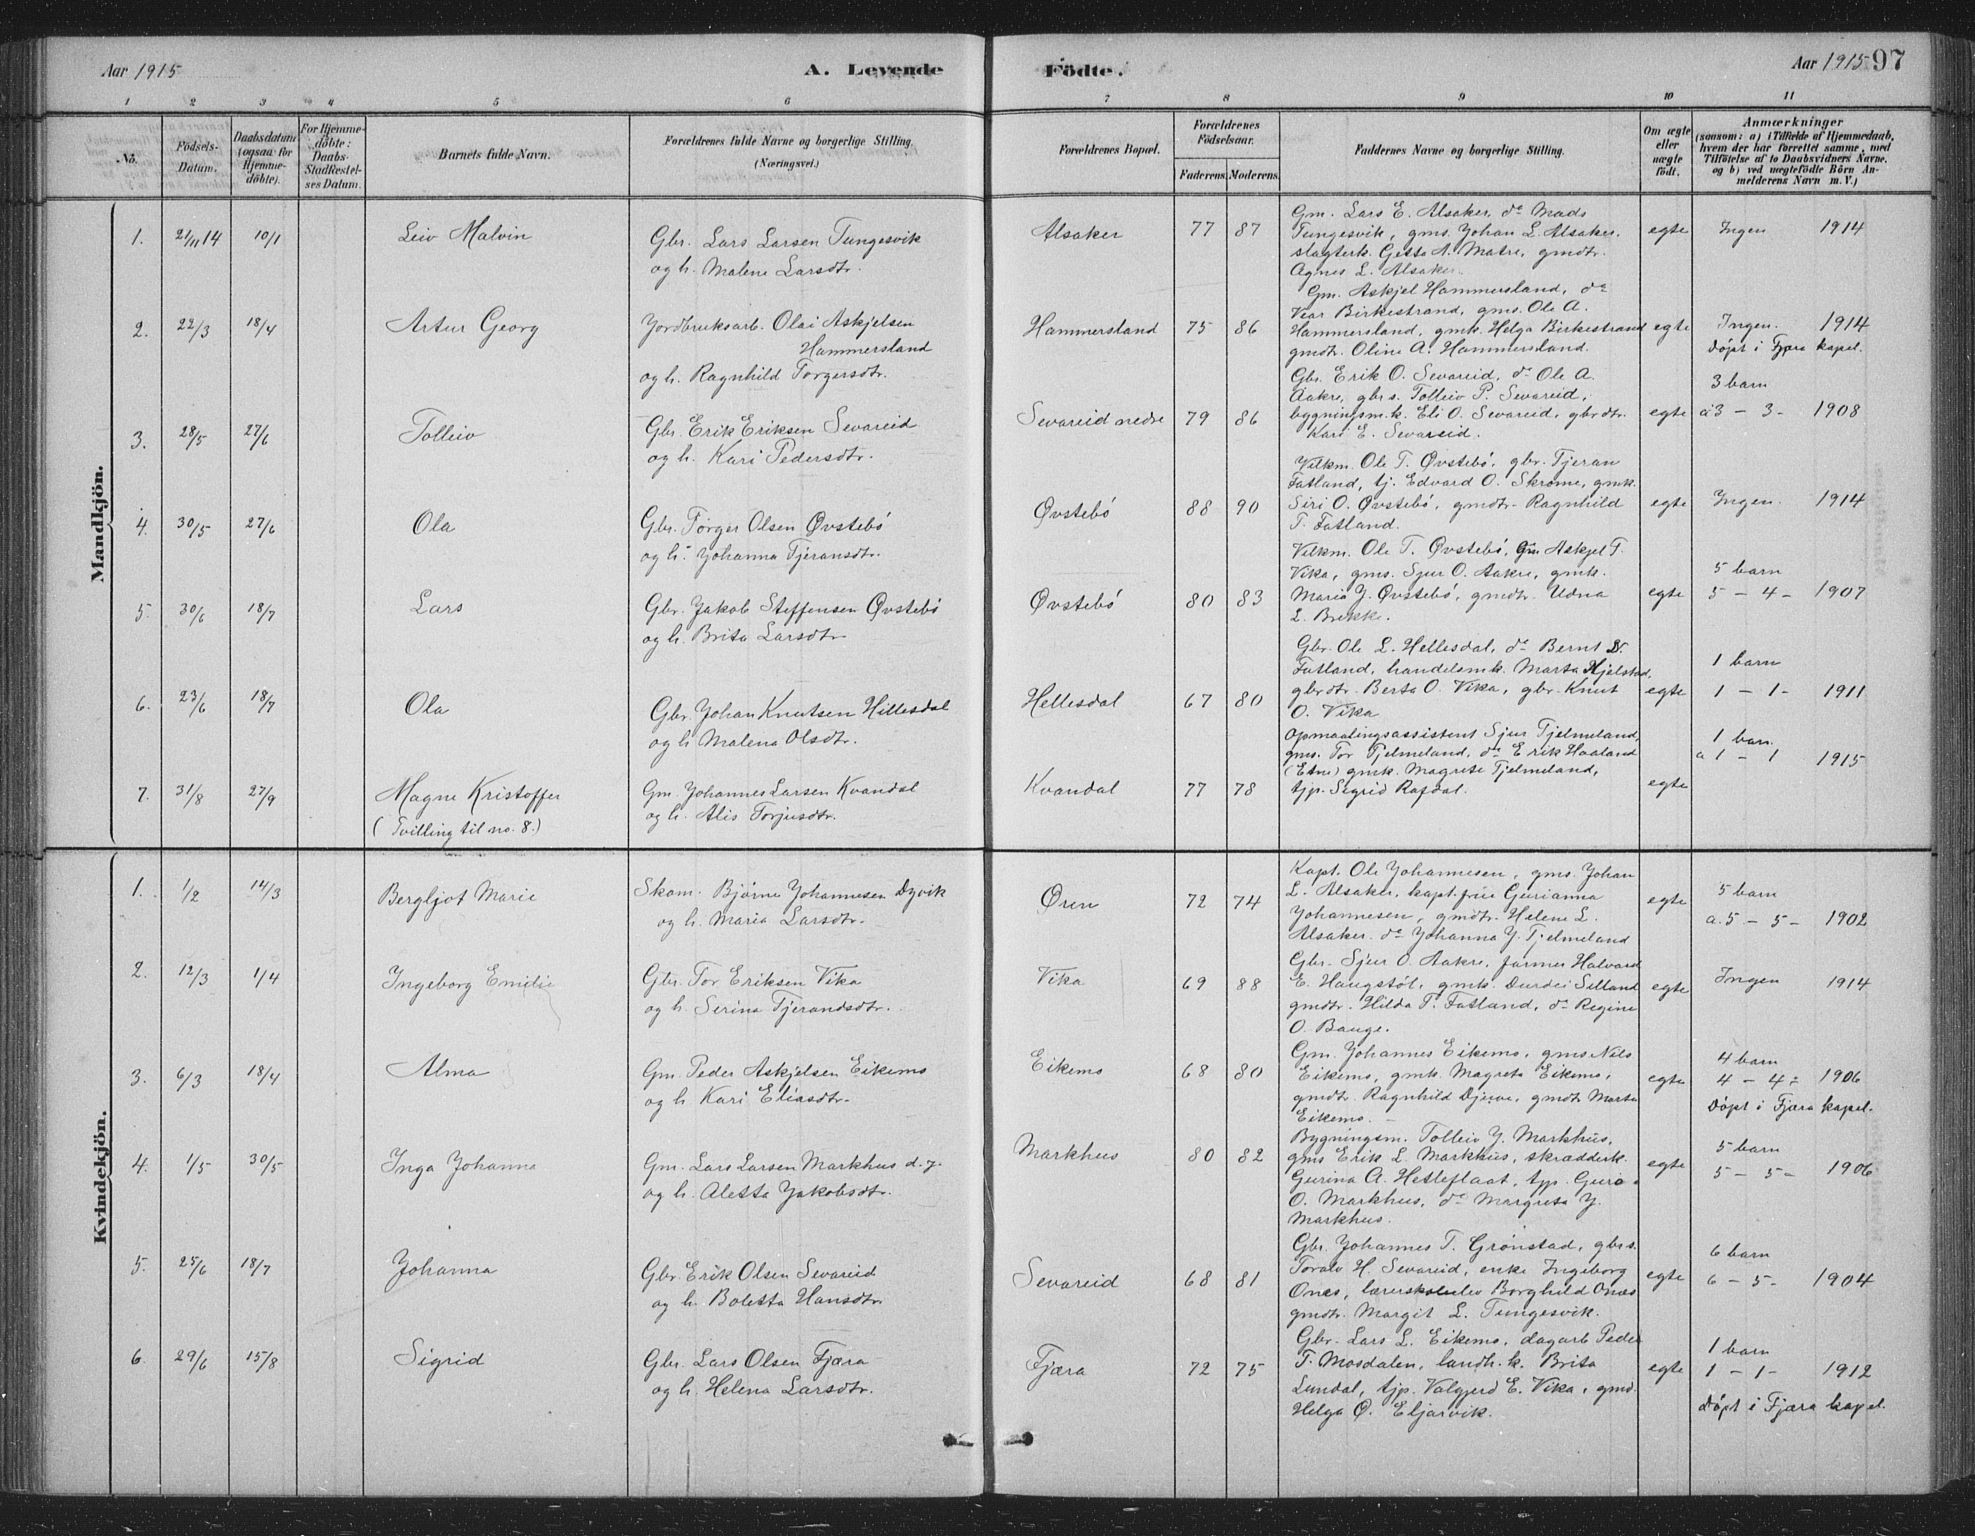 Aar 1915 A. Levende Födte. Aar 1915 97
1 2 3 4 5 6 7 8 9 10 11
No.
Födsels-Datum.
Daabsdatum (ogsaa for Hjemmedöbte).
For Hjemmedöbte: Daabs-Stadfæstelses Datum.
Barnets fulde Navn.
Forældrenes fulde Navne og borgerlige Stilling. (Næringsvei.)
Forældrenes Bopæl.
Forældrenes Födselsaar.
Faderens. Moderens.
Faddernes Navne og borgerlige Stilling.
Om ægte eller uægte födt.
Anmærkninger
(saasom: a) i Tilfælde af Hjemmedaab,
hvem der har forrettet samme, med
Tilföielse af to Daabsvidners Navne.
og b) ved uægtefödte Börn An-
melderens Navn m. V.)
Mandkjön.
1. 21/11 14 10/1 Leiv Malvin
Gbr. Lars Larsen Tungesvik
og h. Malene Larsdtr.
Alsaker 77 87
Gm. Lars E. Alsaker, do Mads
Tungesvik, gms. Johan L. Alsaker,
slagterk. Getta A. Matre, gmdtr.
Agnes L. Alsaker.
egte Ingen 1914
2. 22/3 18/4 Artur Georg
Jordbruksarb. Olai Askjelsen
Hammersland
og h. Ragnhild Torgersdtr.
Hammersland 75 86
Gm. Askjel Hammersland, do
Vear Birkestrand, gms. Ole A.
Hammersland, gmk. Helga Birkestrand
gmdtr. Oline A. Hammersland.
egte Ingen. 1914
Döpt i Fjæra kapel.
3. 28/5 27/6 Tolleiv
Gbr. Erik Eriksen Sevareid
og h. Kari Pedersdtr.
Sevareid nedre 79 86
Gbr. Erik O. Sevareid, do Ole A.
Aakre, gbrs. Tolleiv P. Sevareid,
bygningsm.k. Eli O. Sevareid, gbrdtr.
Kari E. Sevareid.
egte 3 barn
a 3 - 3 - 1908
4. 30/5 27/6 Ola
Gbr. Torger Olsen Øvstebö
og h. Johanna Tjeransdtr.
Øvstebö 88 90
Vilkm. Ole T. Øvstebö, gbr. Tjeran
Fatland, tj. Edvard O. Skrome, gmk.
Siri O. Øvstebö, gmdtr. Ragnhild
T. Fatland.
egte Ingen. 1914
5. 30/6 18/7 Lars
Gbr. Jakob Steffensen Øvstebö
og h. Brita Larsdtr.
Øvstebö 80 83
Vilkm. Ole T. Øvstebö, Gm. Askjel T.
Vika, gms. Sjur O. Aakre, gmk.
Maria J. Øvstebö, gmdtr. Udna
L. Brekke.
egte 5 barn
5 - 4 - 1907
6. 23/6 18/7 Ola
Gbr. Johan Knutsen Hillesdal
og h. Malena Olsdtr.
Hellesdal 67 80
Gbr. Ole L. Hellesdal, do Bernt
Fatland, handelsmk. Marta Hjelstad,
gbrdtr. Berta O. Vika, gbr. Knut
O. Vika
egte 1 barn
1 - 1 - 1911
7. 31/8 27/9 Magne Kristoffer
(Tvilling til no. 8.)
Gm. Johannes Larsen Kvandal
og h. Alis Torjusdtr.
Kvandal 77 78
Opmaalingsassistent Sjur Tjelmeland,
gms. Tor Tjelmeland, do Erik Haaland
(Etne) gmk. Magrete Tjelmeland,
tjp. Sigrid Rafdal.
egte 1 barn.
a 1 - 1 1915
Kvindekjön.
1. 1/2 14/3 Bergljot Marie
Skom. Bjørne Johannesen Dyvik
og h. Maria Larsdtr.
Øren 72 74
Kapt. Ole Johannesen, gms. Johan
L. Alsaker, kapt.frue Gurianna
Johannesen, gmdtr. Helene L.
Alsaker. do Johanna J. Tjelmeland
egte 5 barn
a. 5 - 5 - 1902
2. 12/3 1/4 Ingeborg Emilie
Gbr. Tor Eriksen Vika
og h. Serina Tjerandsdtr.
Vika 69 88
Gbr. Sjur O. Aakre, farmer Halvard
E. Haugstöl, gmk. Durdei Silland
gmdtr. Hilda T. Fatland, do Regine
O. Bauge.
egte Ingen 1914
3. 6/3 18/4 Alma
Gm. Peder Askjelsen Eikemo
og h. Kari Eliasdtr.
Eikemo 68 80
Gm. Johannes Eikemo, gms. Nils
Eikemo, gmk. Magreta Eikemo,
gmdtr. Ragnhild Djuve, gmdtr. Marta
Eikemo.
egte 4 barn
4 - 4 - 1906
Döpt i Fjæra kapel.
4. 1/5 30/5 Inga Johanna
Gm. Lars Larsen Markhus d.y.
og h. Aletta Jakobsdtr.
Markhus 80 82
Bygningsm. Tolleiv J. Markhus,
gms Erik L. Markhus, skrædderk.
Gurina A. Hetleflaat, tjp. Guro
O. Markhus, do Margreta J.
Markhus.
egte 5 barn
5 - 5 - 1906
5. 25/6 18/7 Johanna
Gbr. Erik Olsen Sevareid
og h. Boletta Hansdtr.
Sevareid 68 81
Gbr. Johannes T. Grönstad, gbrs.
Toralv H. Sevareid, enke Ingeborg
Onæs, lærerskolelev Borghild Onæs
gmdtr. Margit L. Tungesvik.
egte 6 barn
6 - 5 - 1904
6. 29/6 15/8 Sigrid
Gbr. Lars Olsen Fjæra
og h. Helena Larsdtr.
Fjæra 72 75
Gbr. Lars L. Eikemo, dagarb. Peder
T. Mosdalen, landh.k. Brita
Lundal, tjp. Valgjerd E. Vika, gmd.
Helga Ø. Eljarvik.
egte 1 barn
1 - 1 - 1912
Döpt i Fjæra kapel.